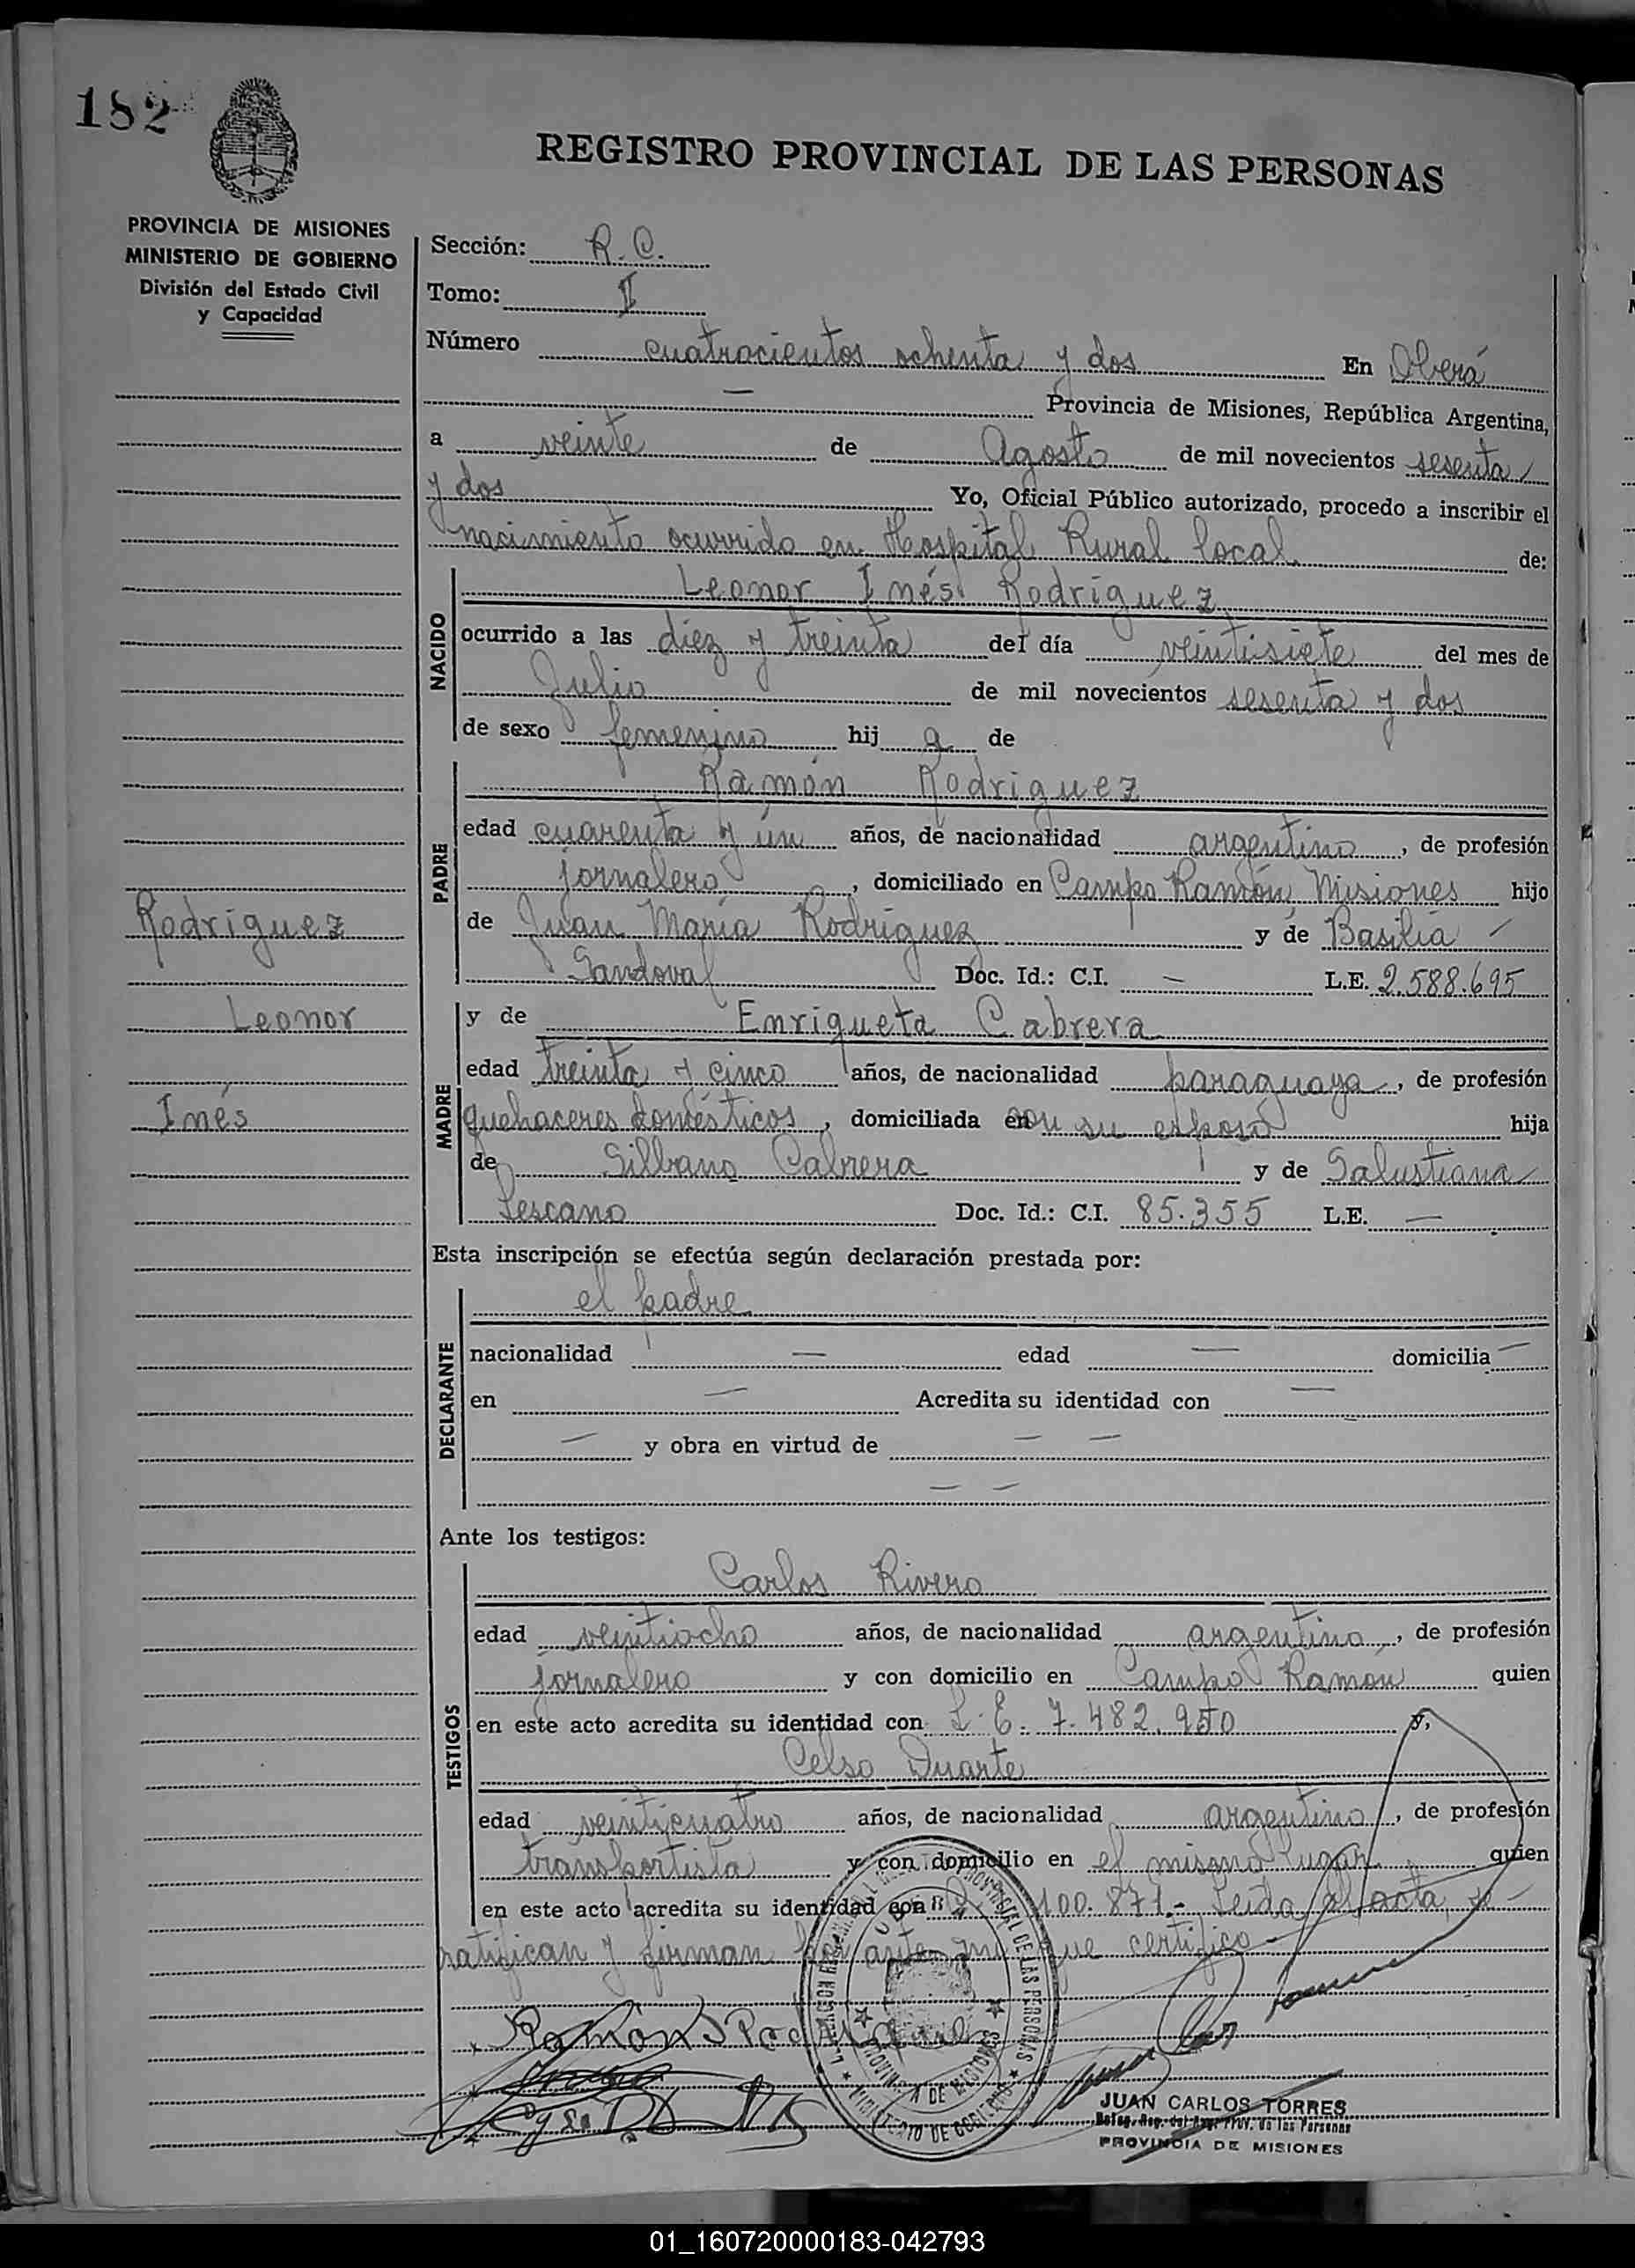 182
REGISTRO PROVINCIAL DE LAS PERSONAS
PROVINCIA DE MISIONES
MINISTERIO DE GOBIERNO
División del Estado Civil
y Capacidad
Sección: R. C.
Tomo: II
Número cuatrocientos ochenta y dos En Oberá
— Provincia de Misiones, República Argentina,
a veinte de Agosto de mil novecientos sesenta
y dos Yo, Oficial Público autorizado, procedo a inscribir el
nacimiento ocurrido en Hospital Rural local de:
NACIDO
Leonor Inés Rodriguez
ocurrido a las diez y treinta del día veintisiete del mes de
Julio de mil novecientos sesenta y dos
de sexo femenino hij a de
PADRE
Ramón Rodriguez
edad cuarenta y un años, de nacionalidad argentino, de profesión
jornalero, domiciliado en Campo Ramón, Misiones hijo
de Juan María Rodriguez y de Basilia —
Sandoval Doc. Id.: C.I. — L.E. 2.588.695
Rodriguez
Leonor
Inés
MADRE
y de Enriqueta Cabrera
edad treinta y cinco años, de nacionalidad paraguaya, de profesión
quehaceres domésticos, domiciliada en con su esposo hija
de Silbano Cabrera y de Salustiana
Lescano Doc. Id.: C.I. 85.355 L.E. —
Esta inscripción se efectúa según declaración prestada por:
DECLARANTE
el padre
nacionalidad — edad — domicilia —
en — Acredita su identidad con —
— y obra en virtud de — —
— —
Ante los testigos:
TESTIGOS
Carlos Rivero
edad veintiocho años, de nacionalidad argentino, de profesión
jornalero y con domicilio en Campo Ramón quien
en este acto acredita su identidad con L. E. 7.482.950 y,
Celso Duarte
edad veinticuatro años, de nacionalidad argentino, de profesión
transportista y con domicilio en el mismo lugar quien
en este acto acredita su identidad con 100.871.- Leida el acta,
ratifican y firman por ante mi que certifico.-
Ramón Rodriguez
PROVINCIAL DE LAS PERSONAS
PROVINCIA DE MISIONES
MINISTERIO DE GOBIERNO
JUAN CARLOS TORRES
PROVINCIA DE MISIONES
01_160720000183-042793